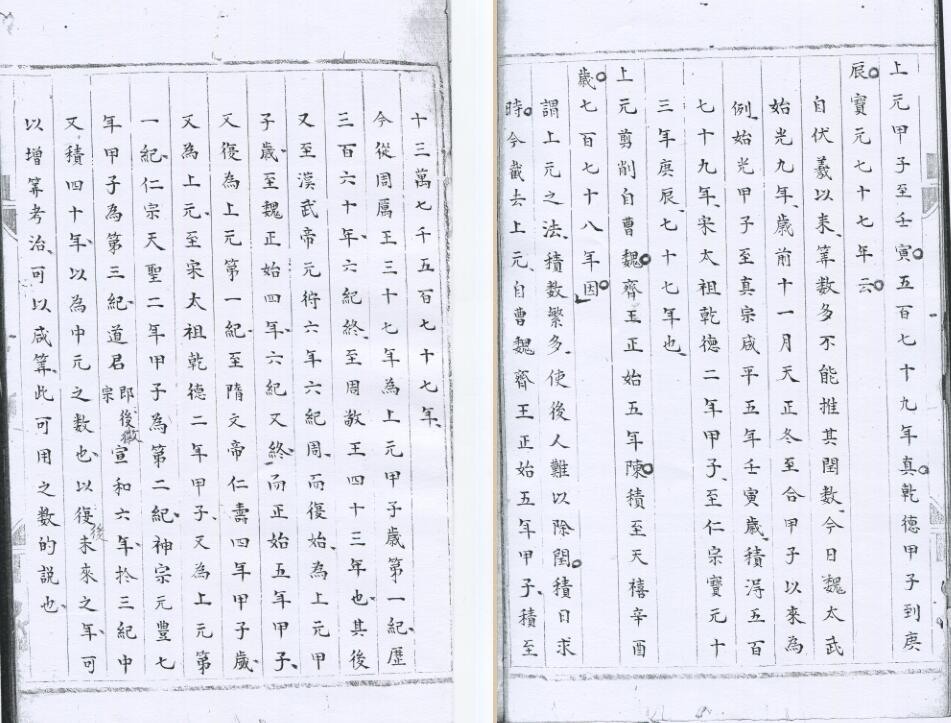 上元甲子至壬寅五百七十九年真乾德甲子到庚
辰寶元七十七年云
自伏羲以来筭數多不能推其閏數今日魏太武
始光九年歲前十一月天正冬至合甲子以來為
例始光甲子至真宗咸平五年壬寅歲積淂五百
七十九年宋太祖乾德二年甲子至仁宗寶元十
三年庚辰七十七年也
上元剪削自曹魏齊王正始五年陳積至天禧辛酉
歲七百七十八年因
謂上元之法積數繁多使後人難以除閏積日求
時今截去上元自曹魏齊王正始五年甲子積至
十三萬七千五百七十七年
今從周厲王三十七年為上元甲子歲第一紀歷
三百六十年六紀終至周敬王四十三年也其後
又至漢武帝元狩六年六紀周而復始為上元甲
子歲至魏正始四年六紀又終而正始五年甲子
又復為上元第一紀至隋文帝仁壽四年甲子歲
又為上元至宋太祖乾德二年甲子又為上元第
一紀仁宗天聖二年甲子為第二紀神宗元豐七
年甲子為第三紀道君即後徽宗宣和六年扵三紀中
又積四十年以為中元之數也以復未來之年可
後
以增筭考治可以咸筭此可用之數的説也